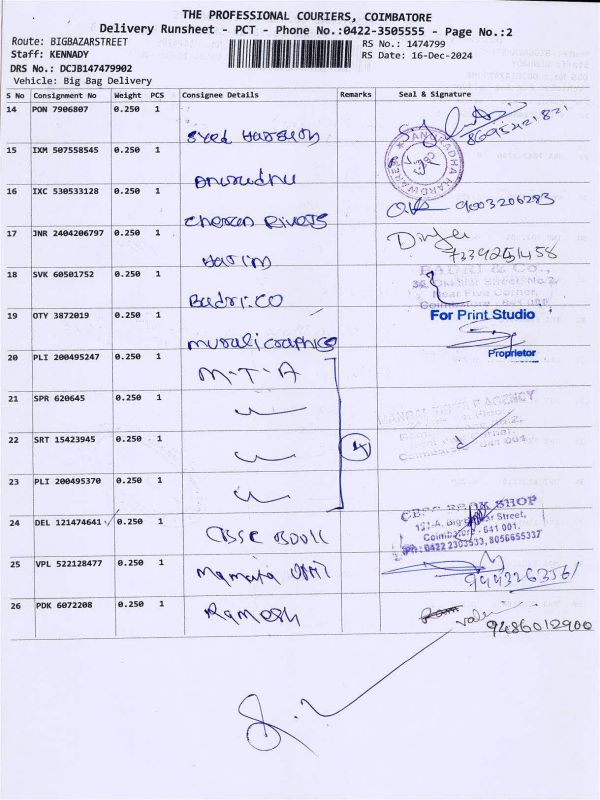 THE PROFESSIONAL COURIERS, COIMBATORE
Delivery Runsheet - PCT - Phone No.:0422-3505555 - Page No.:2
Route: BIGBAZARSTREET
RS No.: 1474799
Staff: KENNADY
RS Date: 16-Dec-2024
DRS No.: DCJB147479902
Vehicle: Big Bag Delivery
S No Consignment No Weight PCS Consignee Details Remarks Seal & Signature
14 PON 7906807 0.250 1
Syed
8695421821
15 IXM 507558545 0.250 1
16 IXC 530533128 0.250 1
9003206283
17 JNR 2404206797 0.250 1
7339251458
18 SVK 60501752 0.250 1
Badri.CO
BADRI & Co.,
Near Five Corner,
19 OTY 3872019 0.250 1
Muraligraphics
For Print Studio
Proprietor
20 PLI 200495247 0.250 1
M-T-A
21 SPR 620645 0.250 1
22 SRT 15423945 0.250 1
4
23 PLI 200495370 0.250 1
24 DEL 121474641 0.250 1
BOOK SHOP
Street,
Coimbatore - 641 001.
PH: 0422 2303533, 8056655337
25 VPL 522128477 0.250 1
9443263561
26 PDK 6072208 0.250 1
Ramesh
9486012900